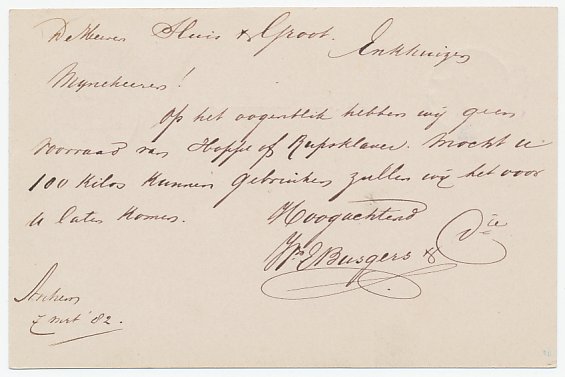 De Heeren Sluis & Groot.
Enkhuizen
Mijneheeren!
Op het oogenblik hebben wij geen
voorraad van Hoppe of Rupsklaver. Mocht u
100 Kilos kunnen gebruiken zullen wij het voor
u laten komen.
Hoogachtend
Busgers & Cie
Arnhem
7 mrt '82.